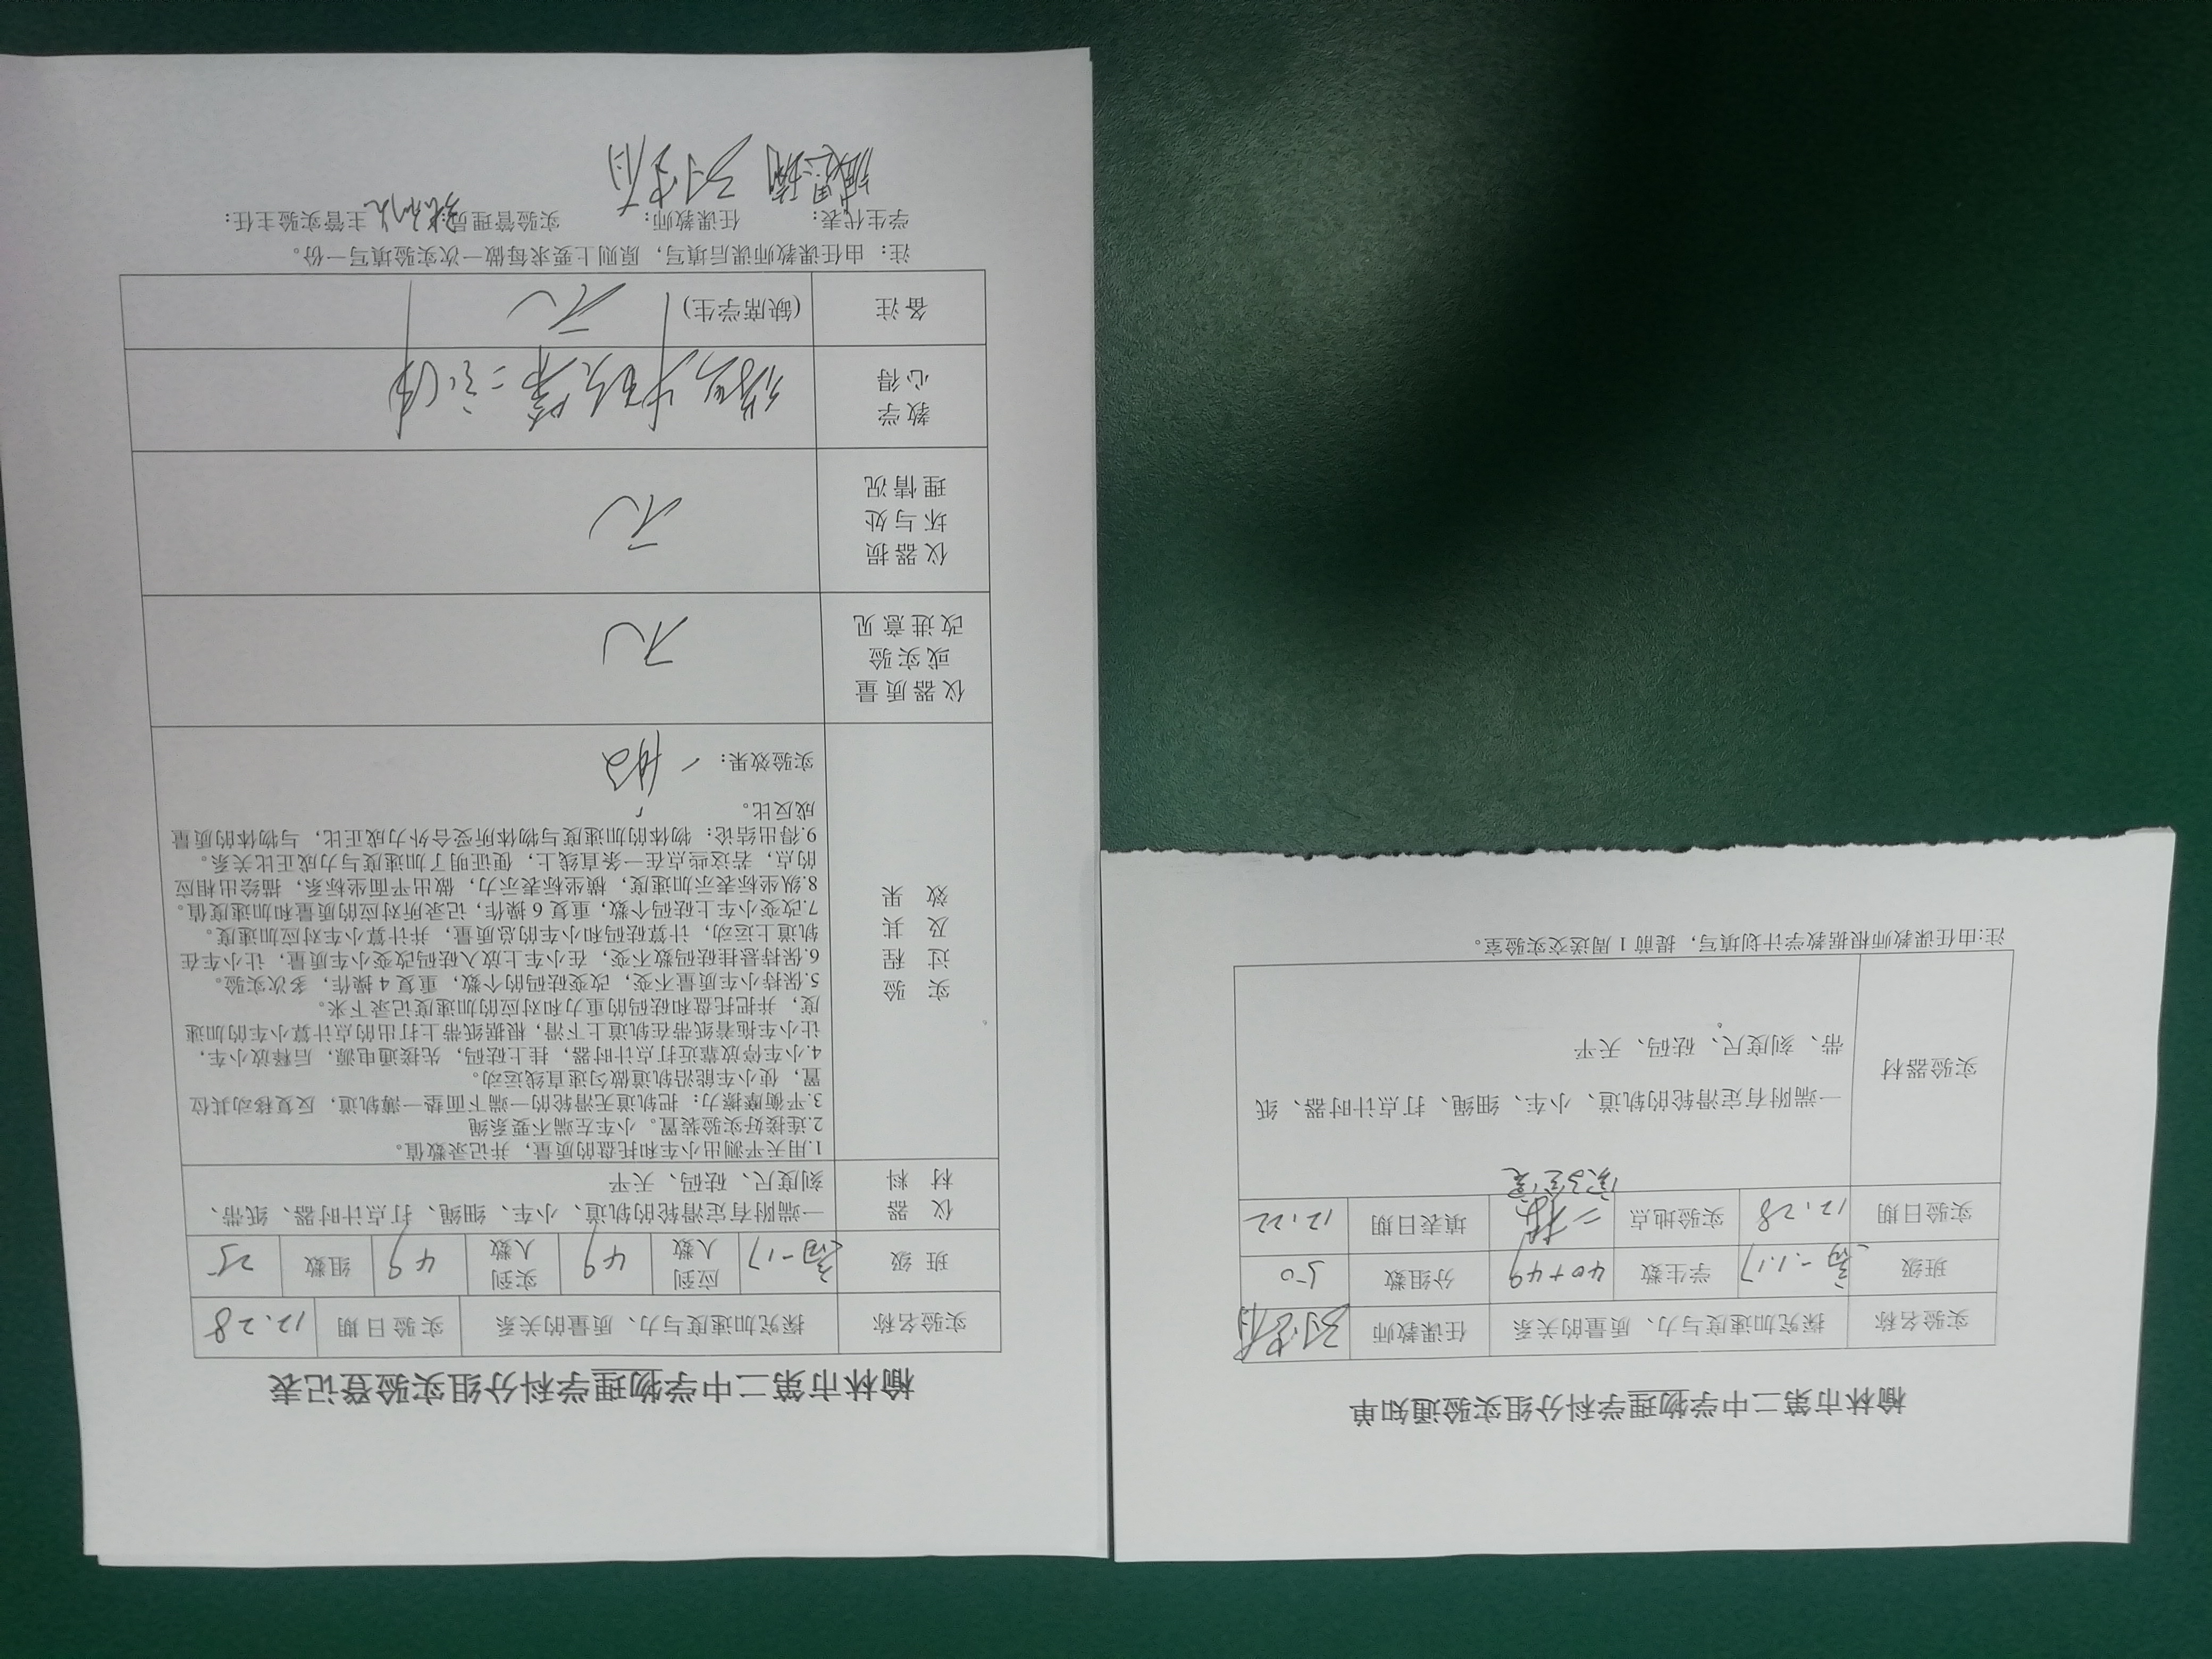 榆林市第二中学物理学科分组实验通知单
实验名称 探究加速度与力、质量的关系 任课教师
班级 高一.1.17 学生数 40+49 分组数 50
实验日期 12.28 实验地点 二楼实验室 填表日期 12.22
实验器材 一端附有定滑轮的轨道、小车、细绳、打点计时器、纸
带、刻度尺、砝码、天平
注:由任课教师根据教学计划填写，提前 1 周送交实验室。
榆林市第二中学物理学科分组实验登记表
实验名称 探究加速度与力、质量的关系 实验日期 12.28
班级 高一17 应到人数 49 实到人数 49 组数 25
仪器材料 一端附有定滑轮的轨道、小车、细绳、打点计时器、纸带、
刻度尺、砝码、天平
实验过程及其效果
1.用天平测出小车和托盘的质量，并记录数值。
2.连接好实验装置。小车左端不要系绳
3.平衡摩擦力：把轨道无滑轮的一端下面垫一薄轨道，反复移动其位
置，使小车能沿轨道做匀速直线运动。
4.小车停放靠近打点计时器，挂上砝码，先接通电源，后释放小车，
让小车拖着纸带在轨道上下滑，根据纸带上打出的点计算小车的加速
度，并把托盘和砝码的重力和对应的加速度记录下来。
5.保持小车质量不变，改变砝码的个数，重复 4 操作，多次实验。
6.保持悬挂砝码数不变，在小车上放入砝码改变小车质量，让小车在
轨道上运动，计算砝码和小车的总质量，并计算小车对应加速度。
7.改变小车上砝码个数，重复 6 操作，记录所对应的质量和加速度值。
8.纵坐标表示加速度，横坐标表示力，做出平面坐标系，描绘出相应
的点，若这些点在一条直线上，便证明了加速度与力成正比关系。
9.得出结论：物体的加速度与物体所受合外力成正比，与物体的质量
成反比。
实验效果：一般
仪器质量或实验改进意见 无
仪器损坏与处理情况 无
教学心得 牛顿第二定律
备注 (缺席学生) 无
注：由任课教师课后填写，原则上要求每做一次实验填写一份。
学生代表： 任课教师： 实验管理员： 主管实验主任：